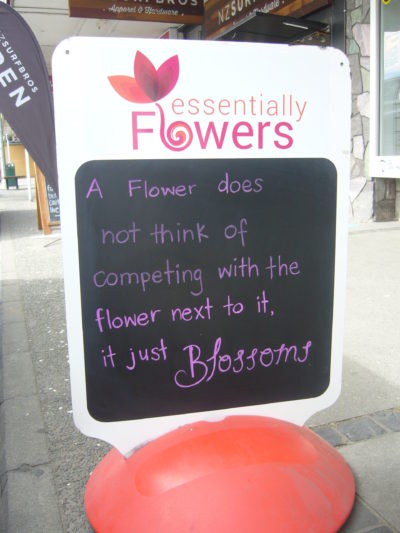 NZSURFBROS
Apparel & Hardware
NZSURFBROS
NZSURFBROS
OPEN
essentially
Flowers
A Flower does
not think of
competing with the
flower next to it,
it just Blossoms